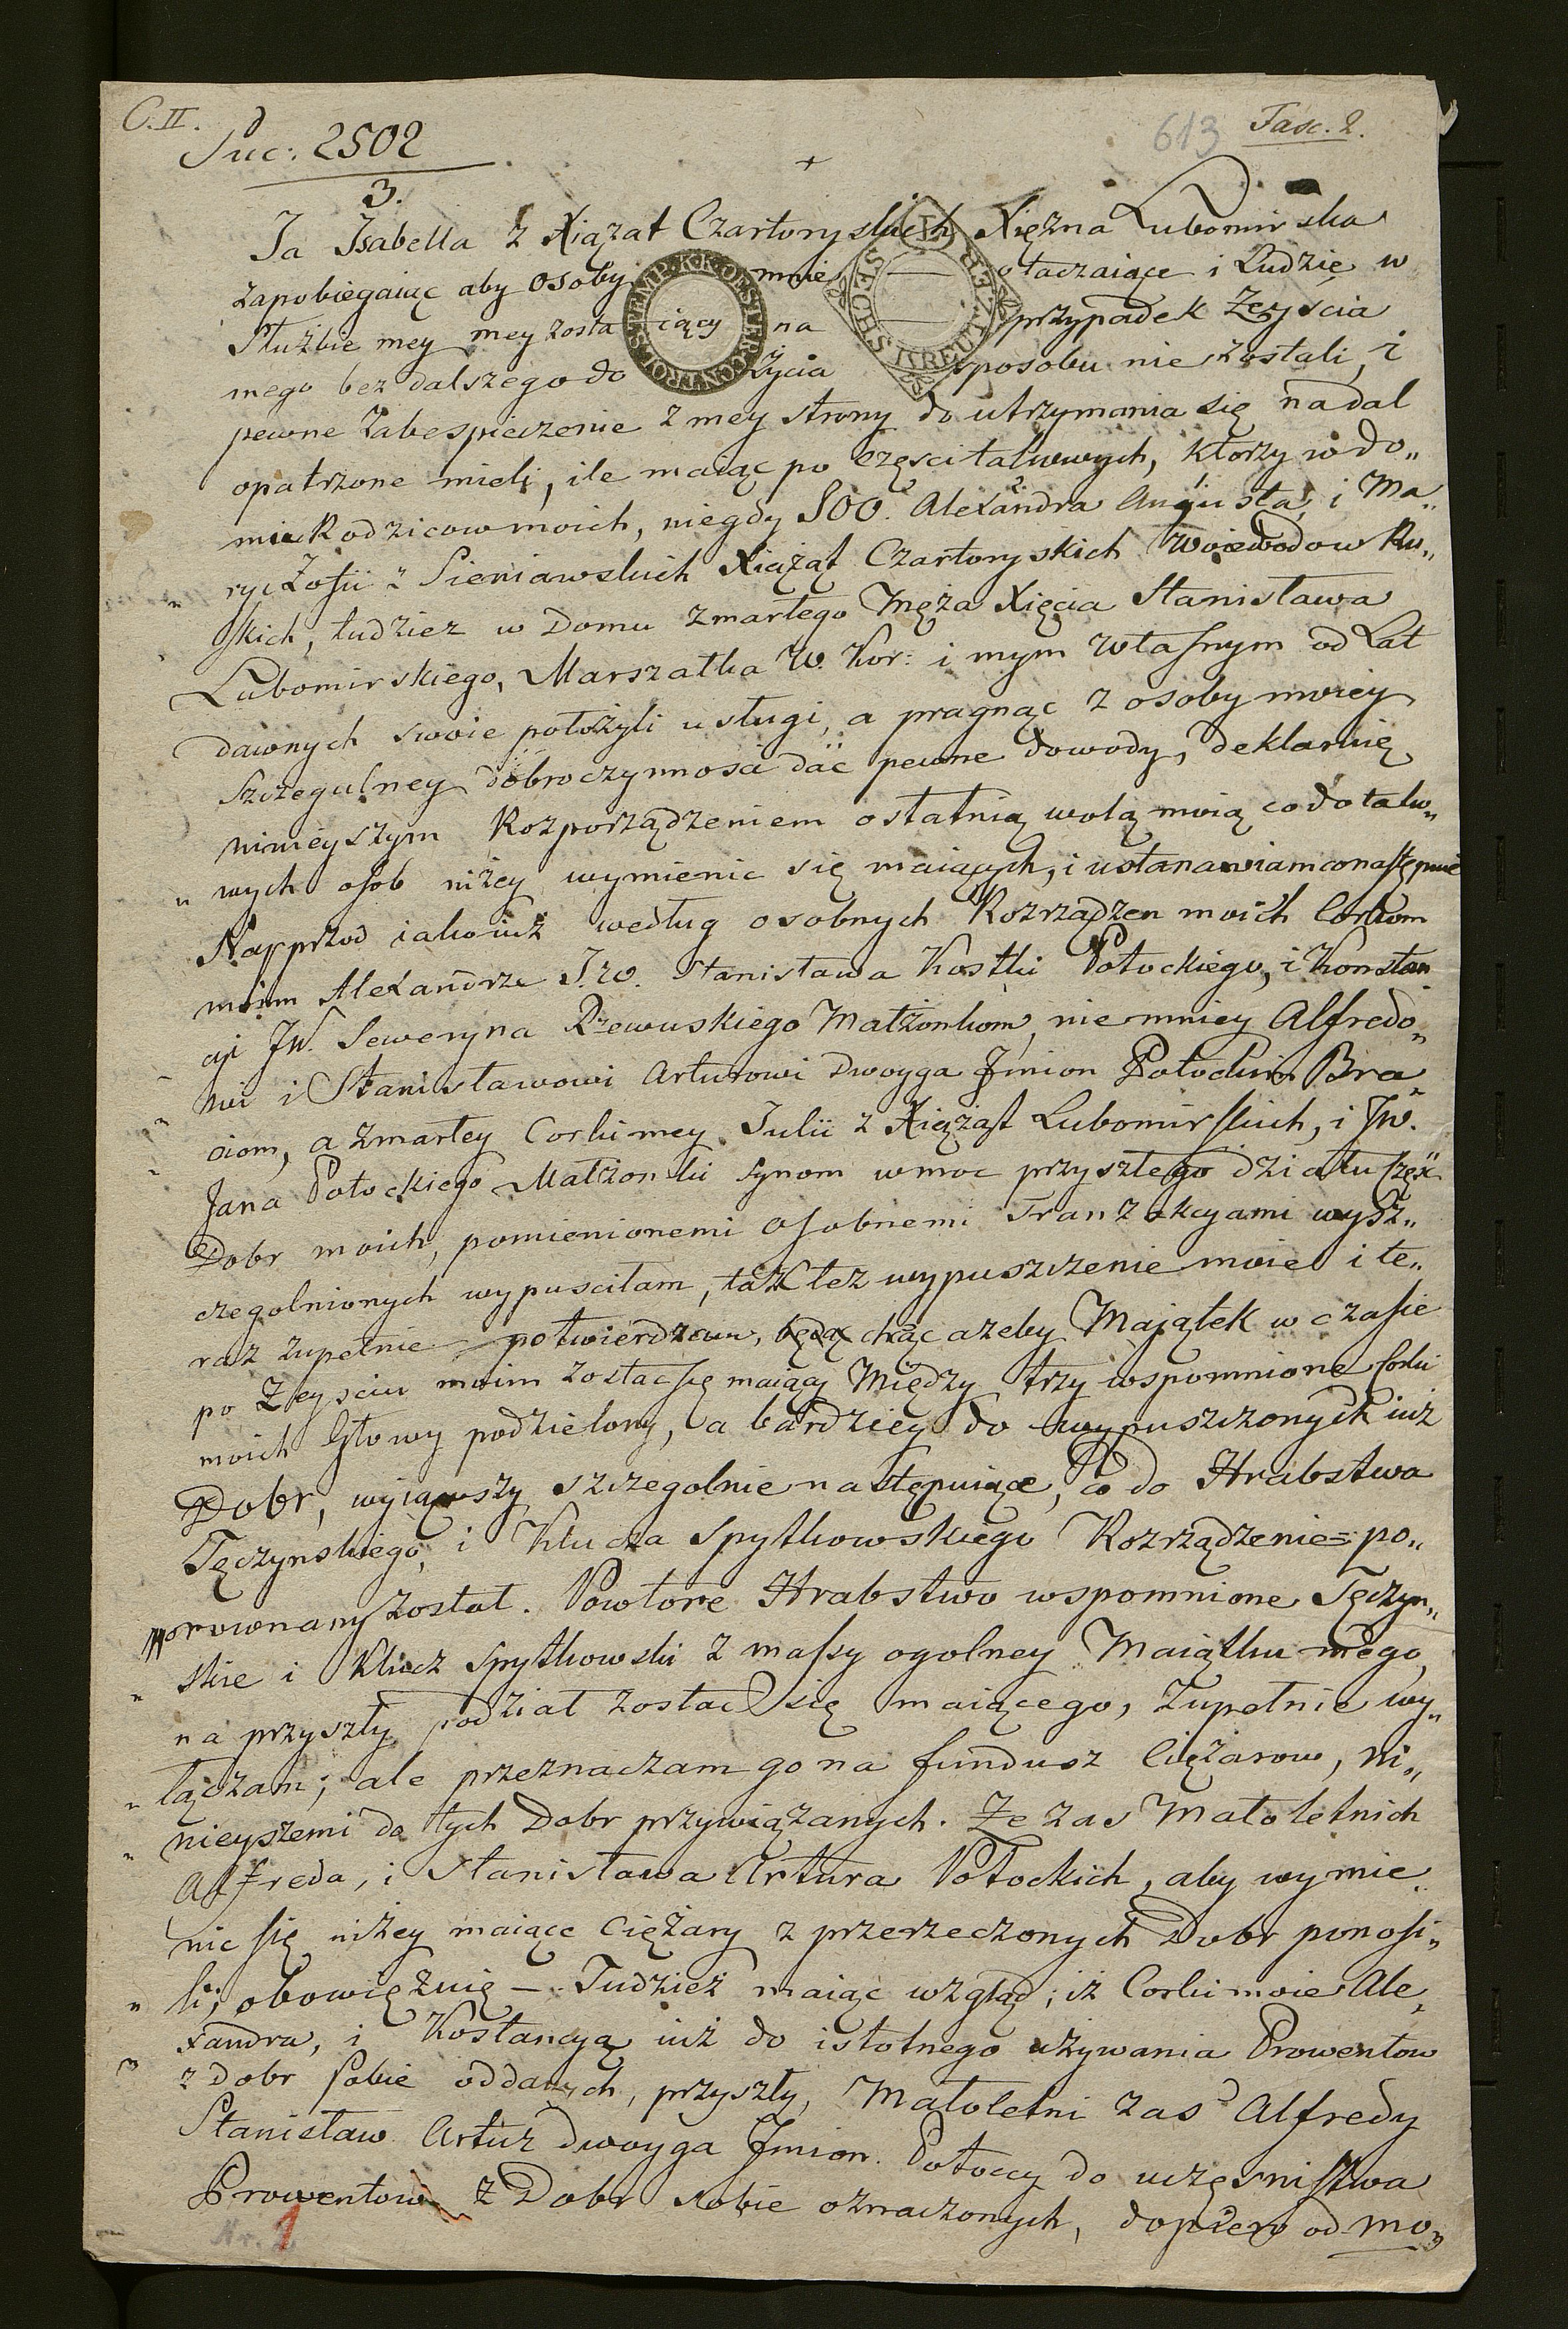 C. II.
Suc: 2502
3.
613 Fasc. 2.
+
Ja Isabella z Xiążat Czartoryskich Xiężna Lubomirska
zapobiegaiąc aby osoby mnie otaczaiące i Ludzie w
Służbie mey mey zostaiący na przypadek Zeyscia
mego bez dalszego do Życia sposobu nie zostali, i
pewne Zabespieczenie z mey strony do utrzymania się nadal
opatrzone mieli, ile maiąc po częsci takowych, ktorzy w do„
mu Rodzicow moich, niegdy SOO. Alexandra Augusta, i Ma„
ryi Zofii z Sieniawskich Xiążąt Czartoryskich Woiewodow Ru„
skich, tudziez w Domu zmarłego Męża Xięcia Stanisława
Lubomirskiego, Marszałka W. Kor: i mym własnym od Lat
dawnych swoie położyli usługi, a pragnąc z osoby moiey
szczegulney dobroczynnosci dać pewne dowody, deklaruię
ninieyszym Rozporządzeniem ostatnią wolą moią co do takow„
„ wych osob niżey wymienic się maiących, i ustanawiam co następuie
Nayprzod iako iuż według osobnych Rozrządzen moich Corkom
moim Alexandrze J.W. Stanisława Kostki Potockiego, i Konstan
cyi JW. Seweryna Rzewuskiego Małżonkom, niemniey Alfredo„
wi i Stanisławowi Arturowi dwoyga Jmion Potockim Bra„
ciom, a zmarłey Corki mey Julii z Xiążąt Lubomirskich, i JW.
Jana Potockiego Małżonki synom w moc przyszłego działu część
Dobr moich, pomienionemi osobnemi Tranzakcyami wysz„
czegolnionych wypusciłam, tak tez wypuszczenie moie i te„
raz zupełnie potwierdzam, będąc chcąc azeby Majątek w czasie
po Zeysciu moim zostac się maiący Między trzy wspomnione Corki
moich Głowy podzielony, a bardziey do wypuszczonych iuż
Dobr, wyiąwszy szczegolnie następuiące, co do Hrabstwa
Tęczynskiego, i Klucza Spytkowskiego Rozrządzenie po„
porownany został. Powtore Hrabstwo wspomnione Tęczyn„
„ skie i Klucz Spytkowski z massy ogolney Maiątku mego,
na przyszły podział zostac się maiącego, zupełnie wy„
„ łączam; ale przeznaczam go na fundusz Ciężarow, ni„
„ nieyszemi do tych Dobr przywiązanych. Ze zas Małoletnich
Alfreda, i Stanisława Artura Potockich, aby wymie„
nic się niżey maiące Ciężary z przerzeczonych Dobr ponosi„
„ li, obowięzuię — Tudzież maiąc wzgląd, iż Corki moie Ale„
xandra, i Kostancya iuż do istotnego używania Prowentow
z Dobr sobie oddanych, przyszły, Małoletni zas Alfredy
Stanisław Artur dwoyga Jmion Potoccy do uczęsnistwa
Prowentow z Dobr sobie oznaczonych, dopiero od mo„
Nr. 1
K.K. OESTER. CONTROLS STEMP.
SECHS KREUTZER